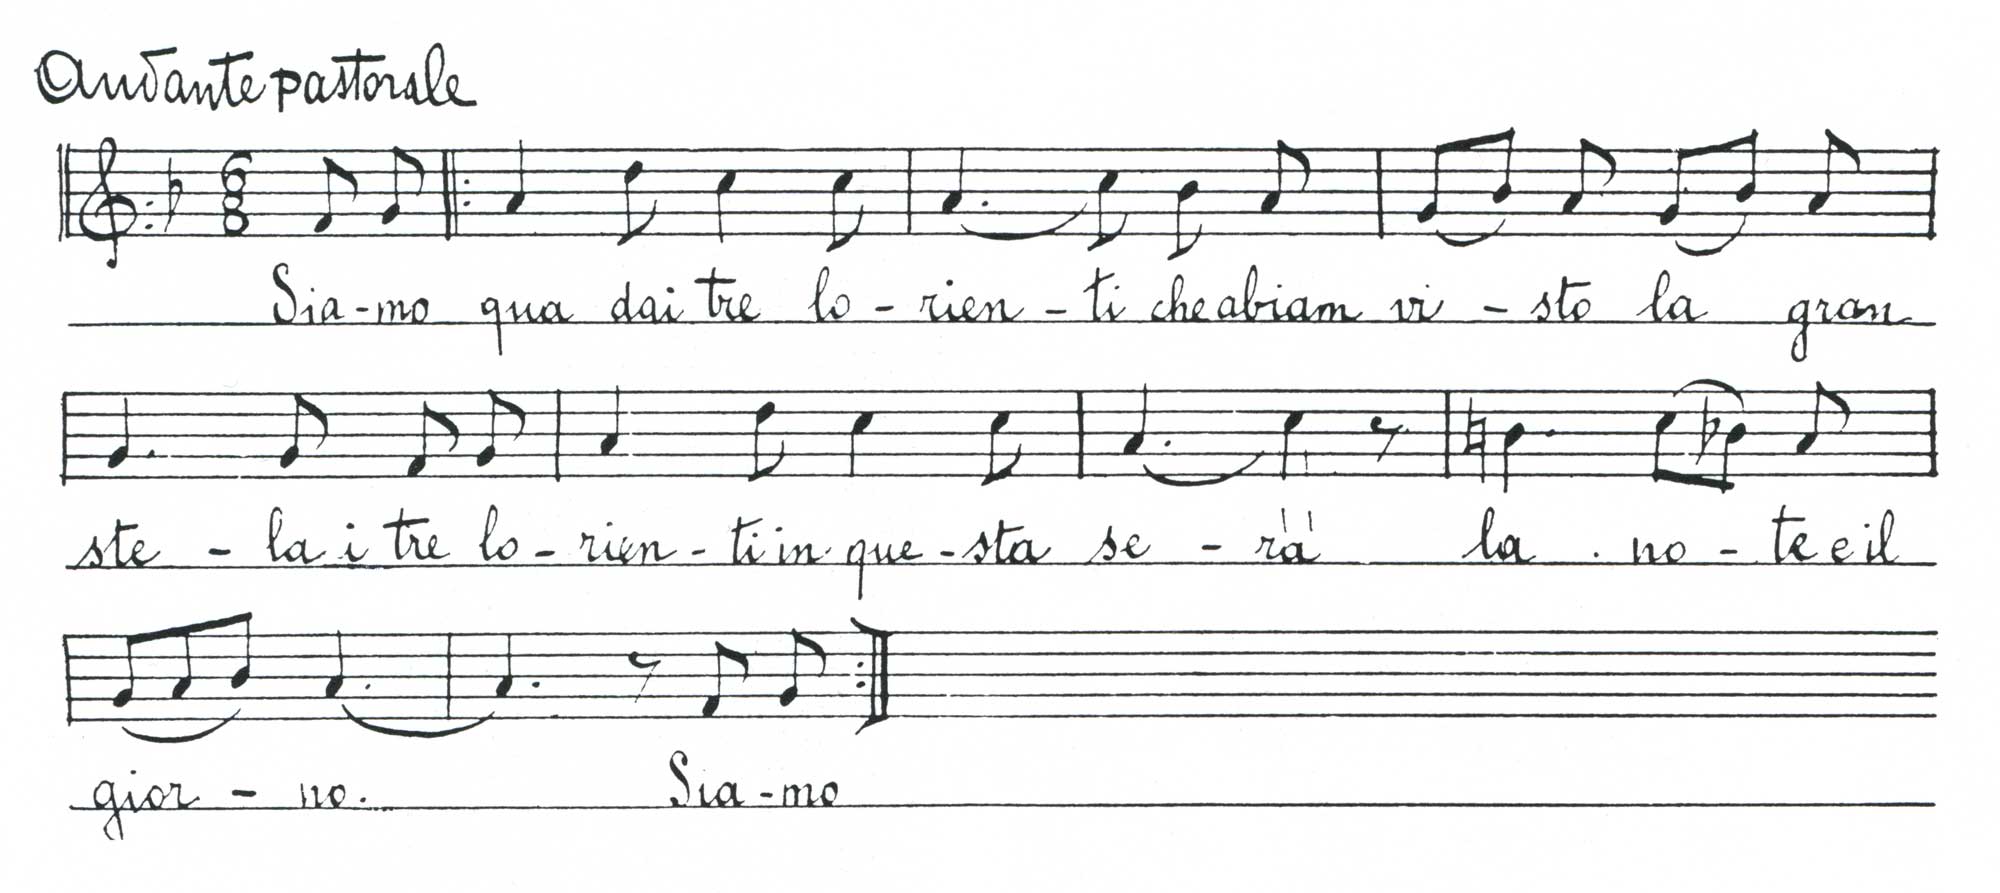 Andante pastorale
6
8
Sia-mo qua dai tre lo-rien-ti che abiam vi-sto la gran
ste-la i tre lo-rien-ti in que-sta se-ra la no-te e il
gior-no. Sia-mo